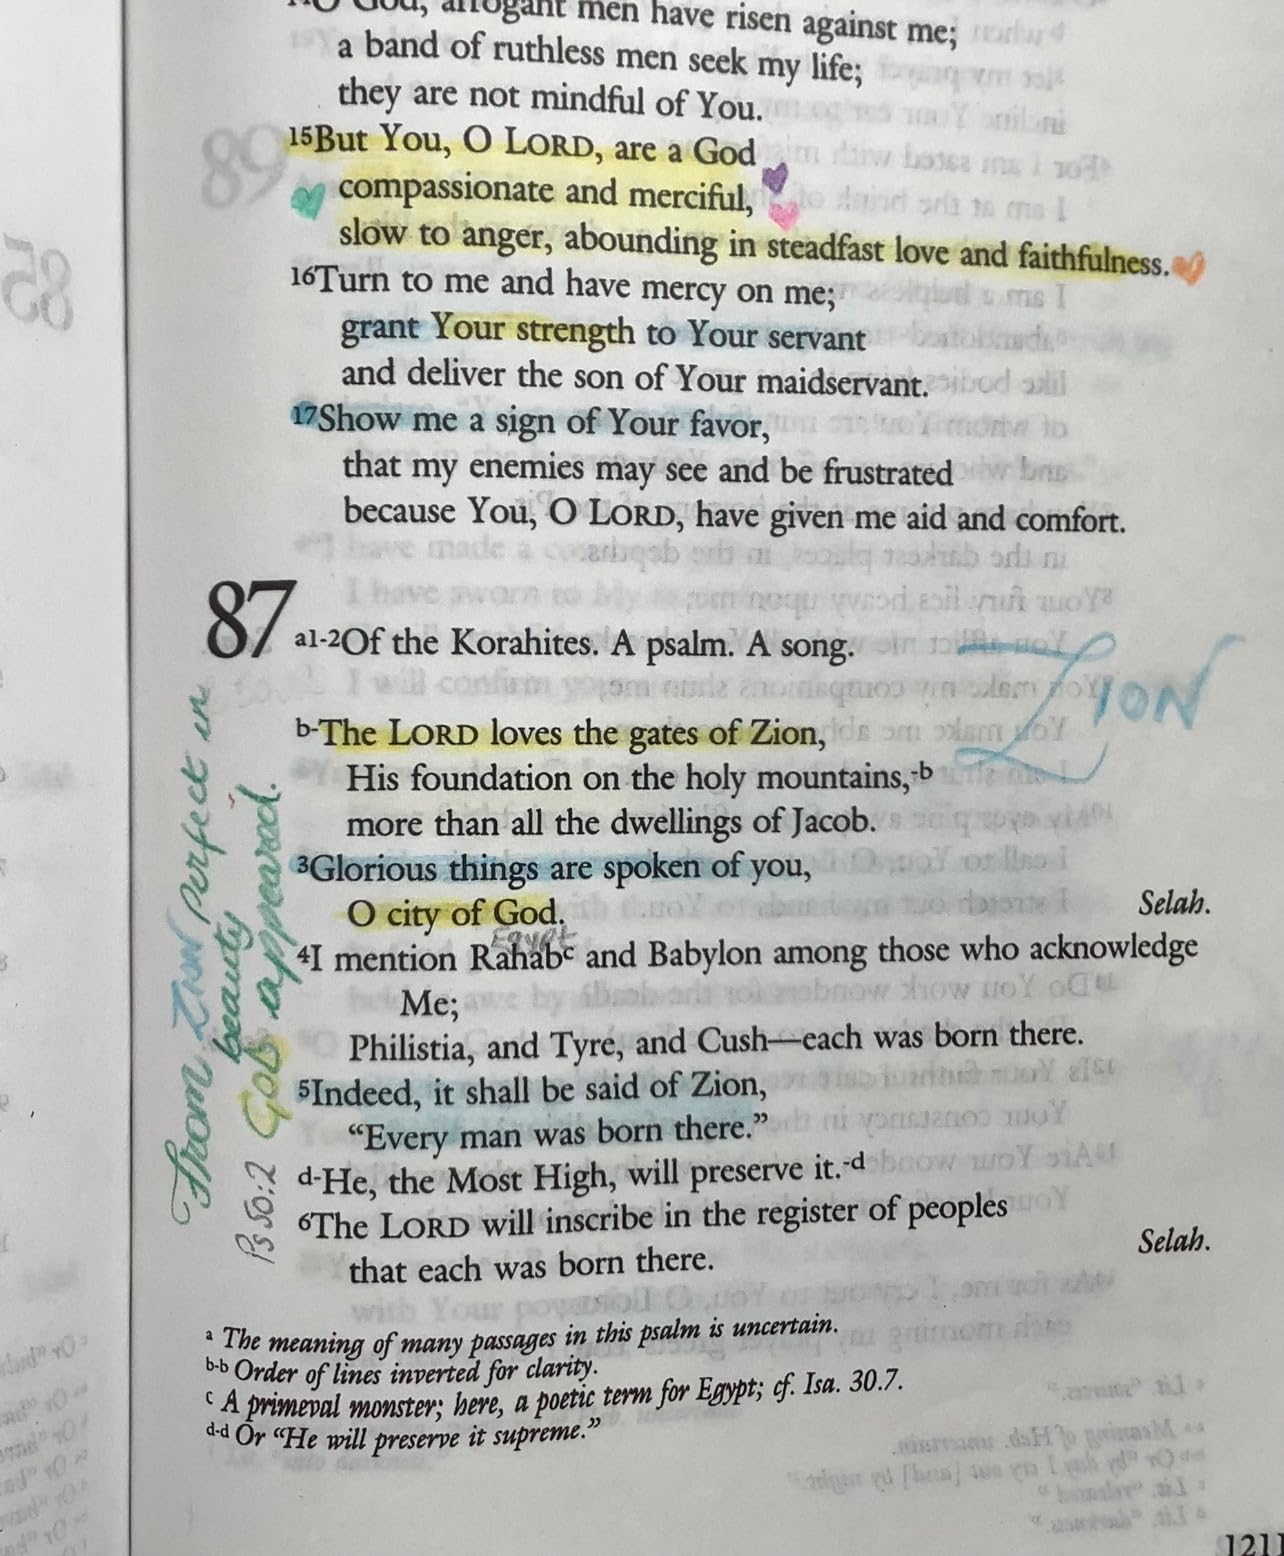 O God, arrogant men have risen against me;
a band of ruthless men seek my life;
they are not mindful of You.
15But You, O LORD, are a God
compassionate and merciful,
slow to anger, abounding in steadfast love and faithfulness.
16Turn to me and have mercy on me;
grant Your strength to Your servant
and deliver the son of Your maidservant.
17Show me a sign of Your favor,
that my enemies may see and be frustrated
because You, O LORD, have given me aid and comfort.
87
a1-2Of the Korahites. A psalm. A song.
ZION
b-The LORD loves the gates of Zion,
His foundation on the holy mountains,-b
more than all the dwellings of Jacob.
3Glorious things are spoken of you,
O city of God. Selah.
Egypt
4I mention Rahabc and Babylon among those who acknowledge
Me;
Philistia, and Tyre, and Cush—each was born there.
5Indeed, it shall be said of Zion,
“Every man was born there.”
d-He, the Most High, will preserve it.-d
6The LORD will inscribe in the register of peoples
that each was born there. Selah.
From ZION perfect in
beauty
Ps 50:2 GOD appeared.
a The meaning of many passages in this psalm is uncertain.
b-b Order of lines inverted for clarity.
c A primeval monster; here, a poetic term for Egypt; cf. Isa. 30.7.
d-d Or “He will preserve it supreme.”
1211